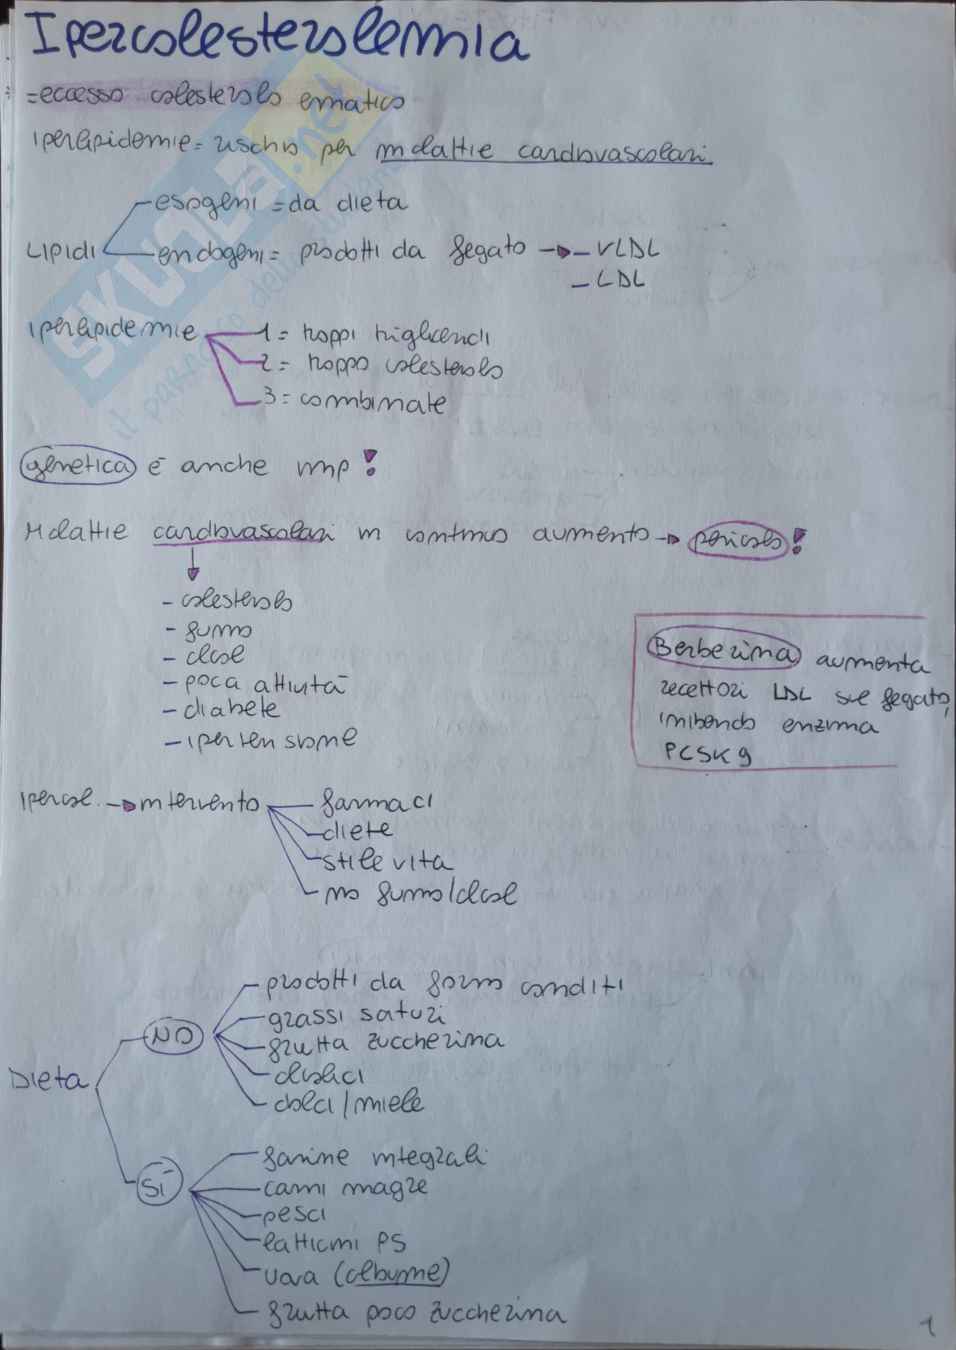 Ipercolesterolemia
= eccesso colesterolo ematico
Iperlipidemie = rischio per malattie cardiovascolari
esogeni = da dieta
Lipidi
endogeni = prodotti da fegato → - VLDL
- LDL
Iperlipidemie
1 = troppi trigliceridi
2 = troppo colesterolo
3 = combinate
genetica è anche imp!
Malattie cardiovascolari in continuo aumento → pericolo!
- colesterolo
- fumo
- alcol
- poca attività
- diabete
- ipertensione
Berberina aumenta
recettori LDL sul fegato,
inibendo enzima
PCSK9
Ipercol. → intervento
farmaci
diete
stile vita
no fumo/alcol
Dieta
NO
prodotti da forno conditi
grassi saturi
frutta zuccherina
alcolici
dolci/miele
SÌ
farine integrali
carni magre
pesci
latticini PS
uova (albume)
frutta poco zuccherina
1
SKUOLA.net